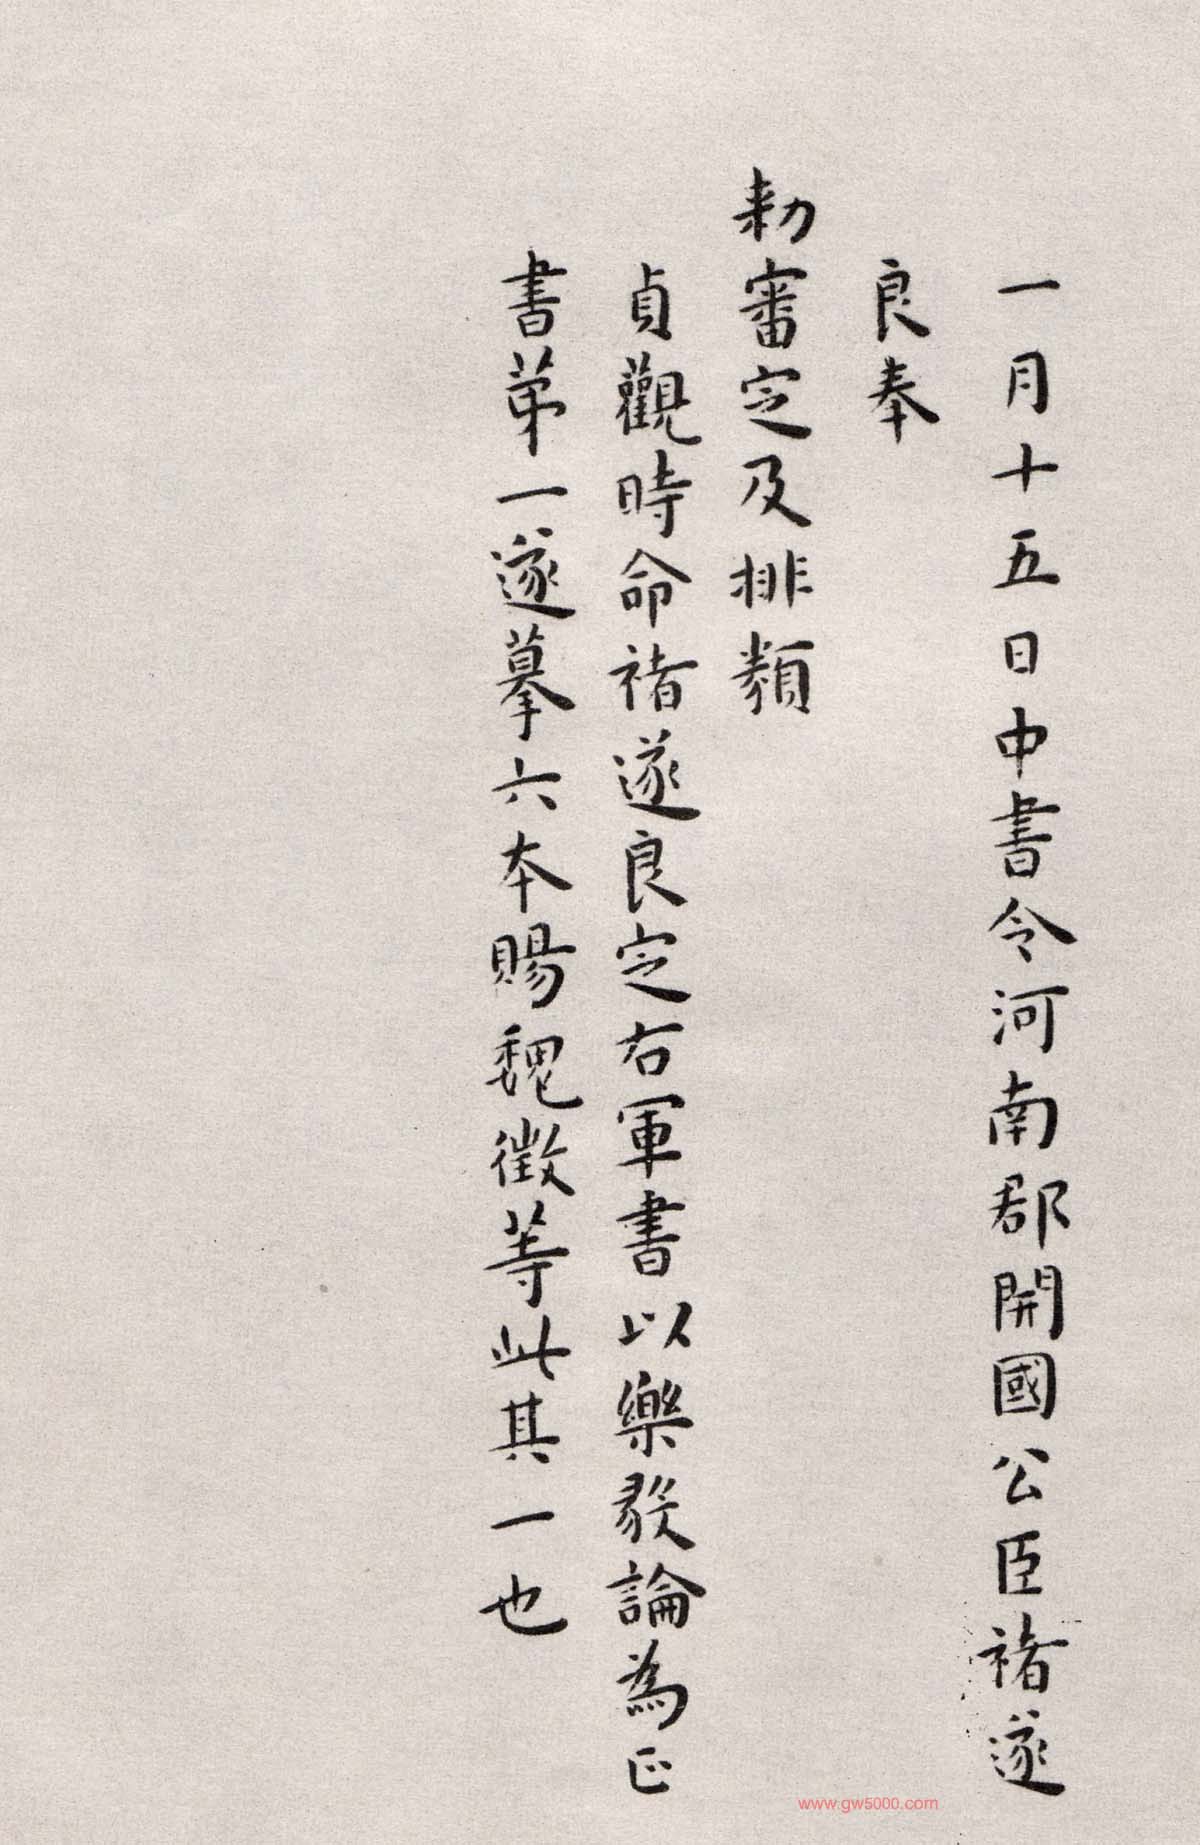 一月十五日中書令河南郡開國公臣褚遂
良奉
勑審定及排類
貞觀時命褚遂良定右軍書以樂毅論為正
書第一遂摹六本賜魏徵等此其一也
www.gw5000.com